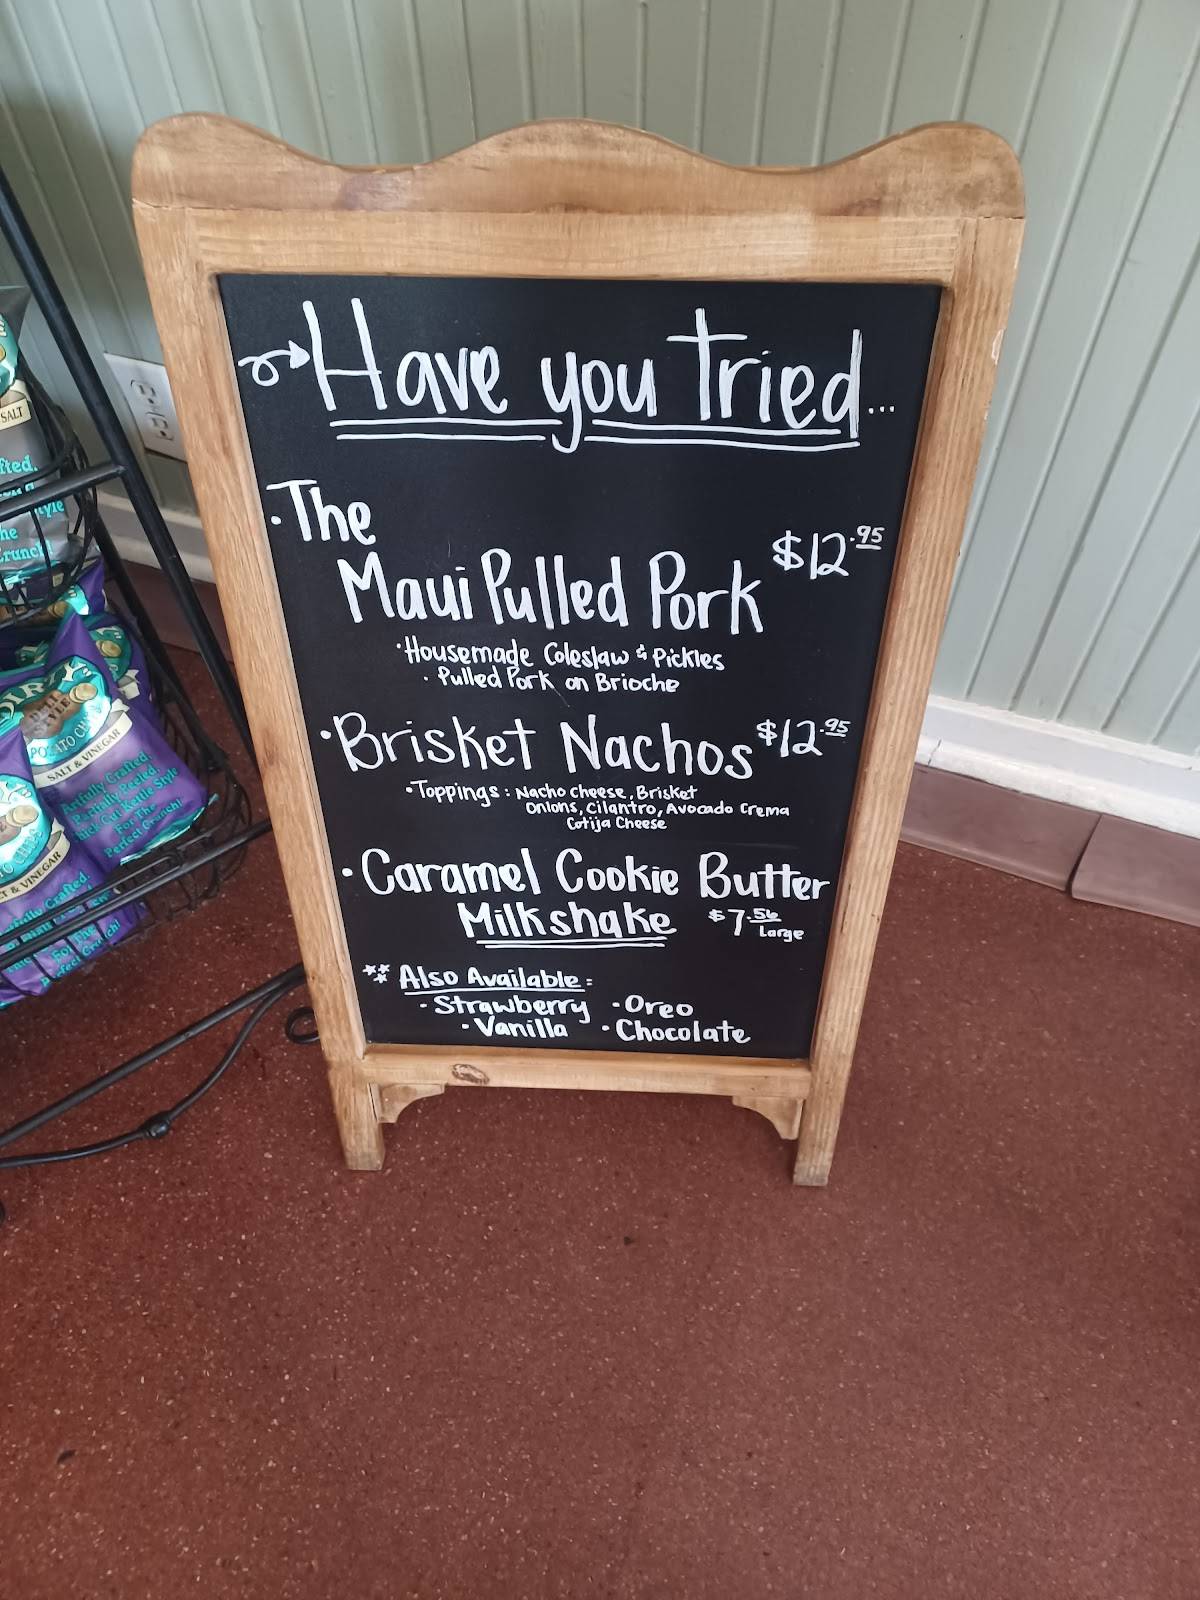 Have you Tried...
· The
Maui Pulled Pork $12.95
· Housemade Coleslaw & Pickles
· Pulled Pork on Brioche
· Brisket Nachos $12.95
· Toppings: Nacho cheese, Brisket
Onions, Cilantro, Avocado Crema
Cotija Cheese
· Caramel Cookie Butter
Milkshake $7.56
Large
Also Available:
· Strawberry · Oreo
· Vanilla · Chocolate
SALT
POTATO CHIPS
SALT & VINEGAR
Artfully Crafted.
Partially Peeled.
Thick Cut Kettle Style
For The
Perfect Crunch!
& VINEGAR